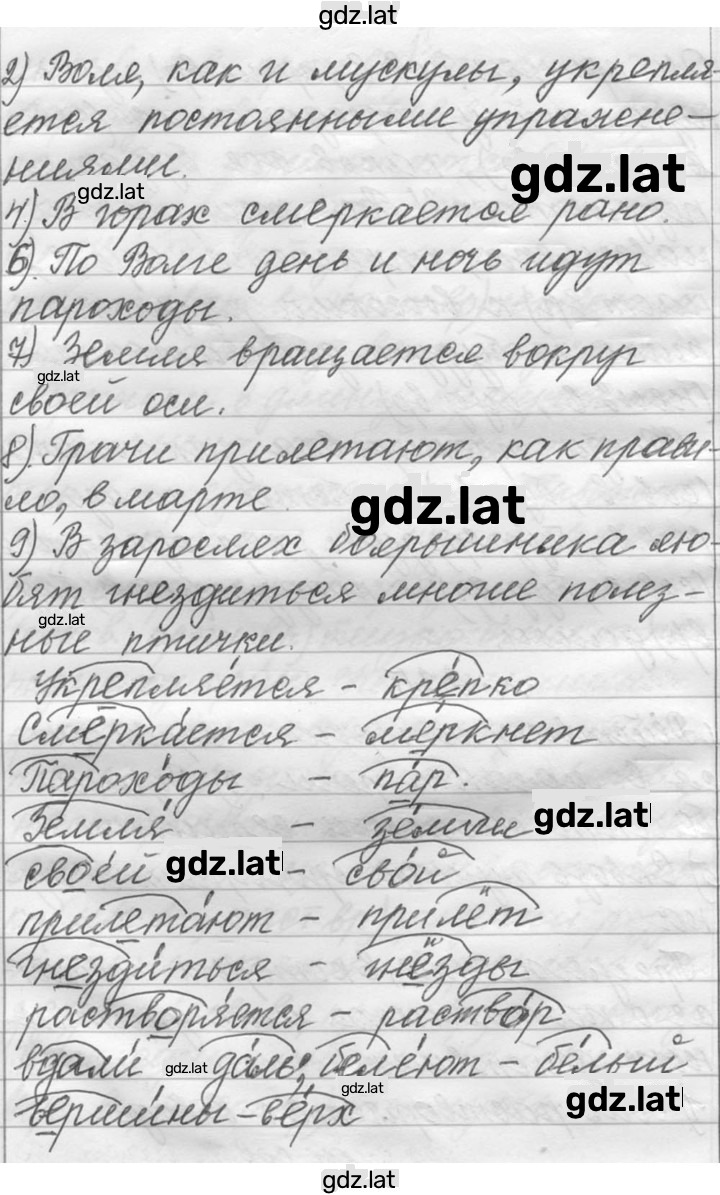 gdz.lat
2) Воля, как и мускулы, укрепля-
ется постоянными упражне-
ниями.
gdz.lat
gdz.lat
4) В горах смеркается рано.
6) По Волге день и ночь идут
пароходы.
7) Земля вращается вокруг
gdz.lat
своей оси.
8) Грачи прилетают, как прави-
ло, в марте.
gdz.lat
9) В зарослях боярышника лю-
бят гнездиться многие полез-
gdz.lat
ные птички.
Укрепля́ется – кре́пко
Смерка́ется – ме́ркнет
Парохо́ды – па́р.
Земля́ – зе́мли gdz.lat
свое́й gdz.lat – сво́й
прилета́ют – прилёт
гнезди́ться – гнёзды
растворя́ется – раство́р
вдали́ gdz.lat да́ль; беле́ют – бе́лый
gdz.lat
верши́ны – ве́рх gdz.lat
gdz.lat